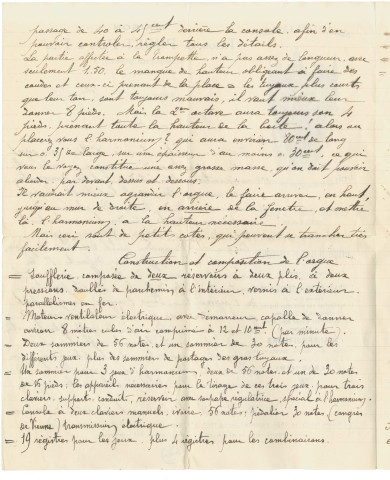 passage de 40 à 45 cent derrière la console, afin d'en
pouvoir controler, régler tous les détails.
La partie affectée à la Trompette, n'a pas assez de longueur, avec
seulement 1.50. le manque de hauteur obligeant à faire des
coudes et ceux-ci prenant de la place = les tuyaux plus courts
que leur ton, sont toujours mauvais, il vaut mieux leur
donner 8 pieds. Mais la 2me octave aura toujours son 4
pieds, prenant toute la hauteur de la boîte, alors où
placerez vous l'harmonium? qui aura environ 80cent de long
sur 0.35 de large sur une épaisseur d'au moins 0.30cent, ce qui
vous le voyez constitue une assez grosse masse, qu'on doit pouvoir
aborder, par devant, dessus et dessous.
Il vaudrait mieux agrandir l'orgue, le faire arriver, en haut,
jusqu'au mur de droite, en arrière de la fenêtre et mettre
là l'harmonium, à la hauteur nécessaire.
Mais ceci sont de petit cotés, qui peuvent se trancher très
facilement.
Construction et composition de l'orgue
= Soufflerie composée de deux réservoirs à deux plis, à deux
pressions doublés de parchemin à l'intérieur, vernis à l'extérieur.
parallélismes en fer.
= Moteur ventilateur électrique avec démarreur capable de donner
environ 8 mètres cubes d'air comprimé à 12 et 10cent (par minute).
= Deux sommiers de 56 notes et un sommier de 30 notes, pour les
différents jeux, plus des sommiers de postages des gros tuyaux.
= Un sommier pour 3 jeux d'harmonium, deux de 56 notes et un de 30 notes
en 16 pieds; les appareils nécessaires pour le tirage de ces trois jeux, pour trois
claviers, support, conduit, réservoir avec soupape régulatrice, spécial à l'harmonium.
= Console à deux claviers manuels, ivoire, 56 notes, pédalier 30 notes (congrès
de Vienne) transmission électrique.
= 19 régistres pour les jeux, plus 4 régistres pour les combinaisons.